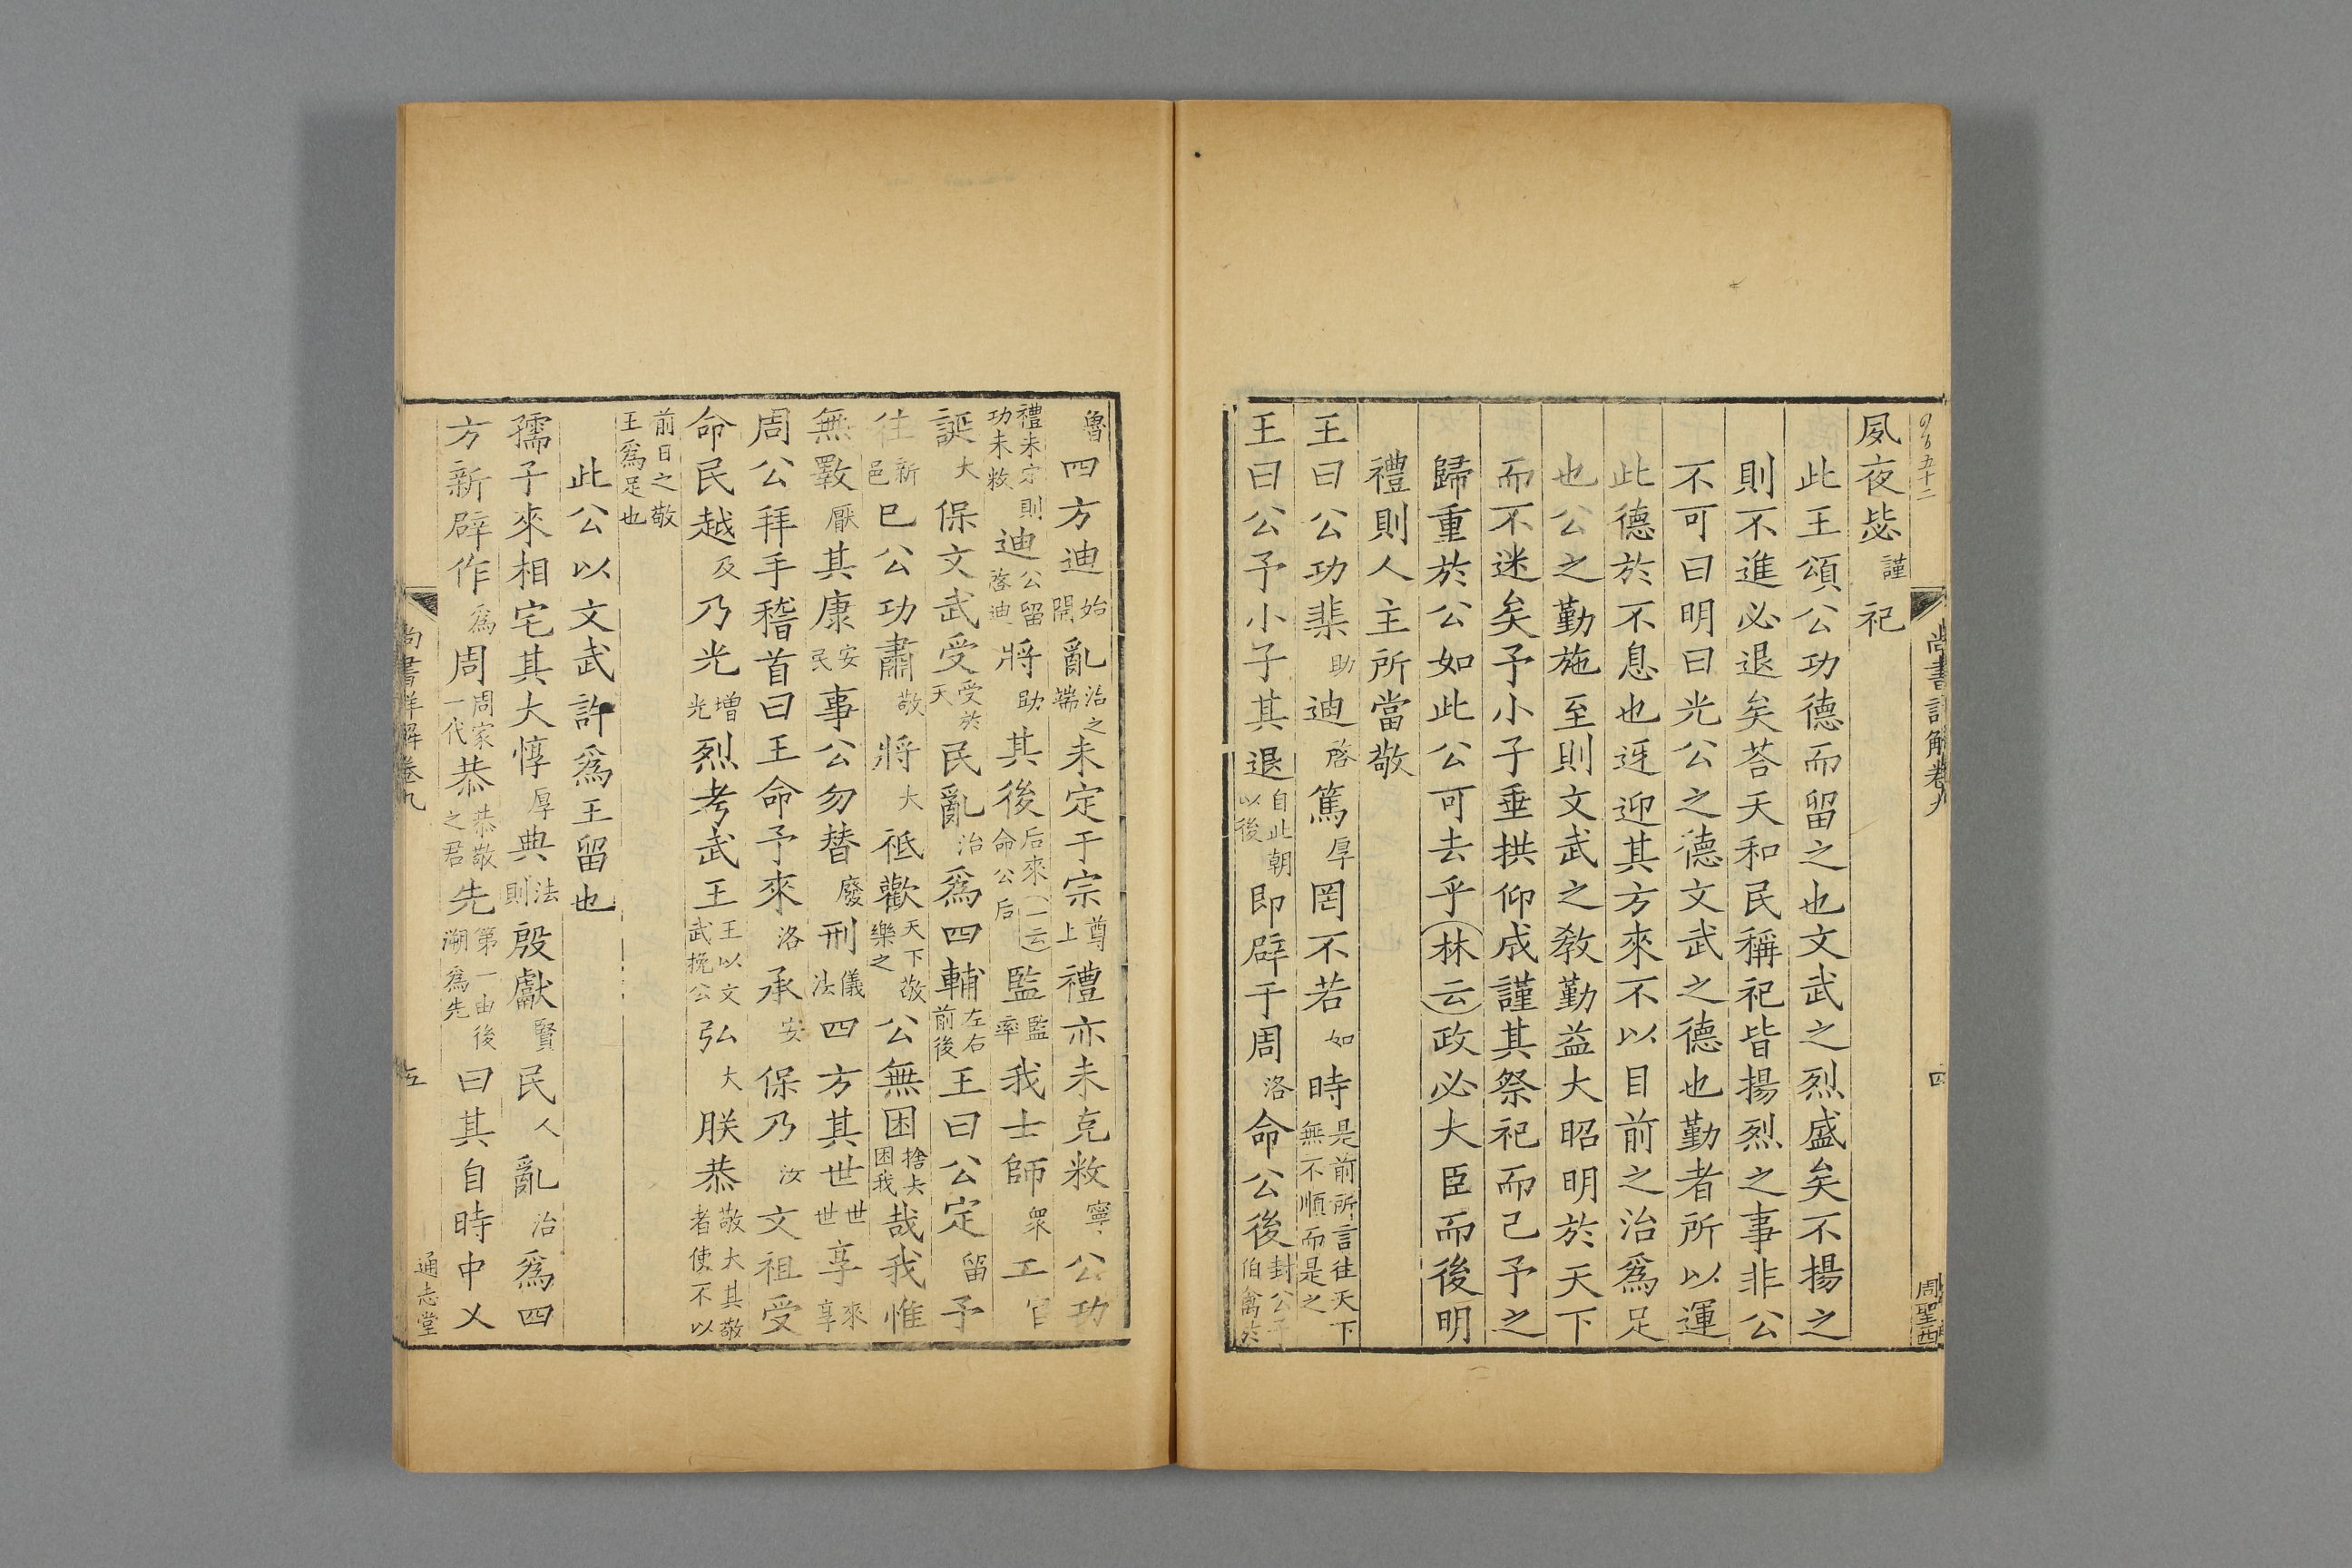 夙夜毖謹祀
此王頌公功德而留之也文武之烈盛矣不揚之
則不進必退矣荅天和民稱祀皆揚烈之事非公
不可曰明曰光公之德文武之德也勤者所以運
此德於不息也迓迎其方來不以目前之治爲足
也公之勤施至則文武之教勤益大昭明於天下
而不迷矣予小子垂拱仰成謹其祭祀而己予之
歸重於公如此公可去乎林云政必大臣而後明
禮則人主所當敬
王曰公功棐助迪啓篤厚罔不若如時是前所言往天下無不順而是之
王曰公予小子其退自此朝以後即辟于周洛命公後封公子伯禽於
尚書詳解卷九
四
周聖酉
魯四方迪始開亂治之端未定于宗尊上禮亦未克敉寧公功
禮未定則功未敉迪公留啓迪將助其後后來命公后一云監監率我士師衆工官
誕大保文武受受於天民亂治爲四輔左右前後王曰公定留予
往新邑巳公功肅敬將大祗歡天下敬樂之公無困捨去困我哉我惟
無斁厭其康安民事公勿替廢刑儀法四方其世世世享來享
周公拜手稽首曰王命予來洛承安保乃汝文祖受
命民越及乃光增光烈考武王王以文武挽公弘大朕恭敬大其敬者使不以
前日之敬王爲足也
此公以文武許爲王留也
孺子來相宅其大惇厚典法則殷獻賢民人亂治爲四
方新辟作爲周周家一代恭恭敬之君先第一由後溯爲先曰其自時中乂
尚書詳解卷九
五
通志堂